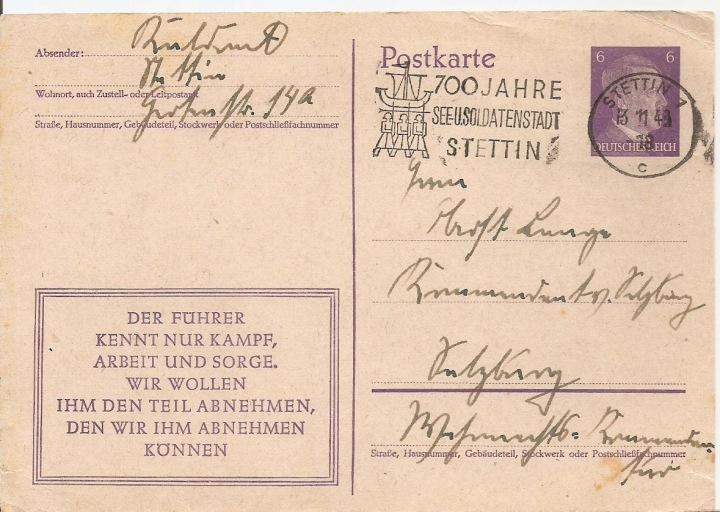 Absender:
Stettin
Wohnort, auch Zustell- oder Leitpostamt
14a
Straße, Hausnummer, Gebäudeteil, Stockwerk oder Postschließfachnummer
Postkarte
700 JAHRE
SEE U. SOLDATENSTADT
STETTIN
6 6
DEUTSCHES REICH
STETTIN 1
13 11 43
c
Herrn
Oberst Lange
Kommandant v. Salzburg
Salzburg
Wehrmachts-Kommandan-
tur
Straße, Hausnummer, Gebäudeteil, Stockwerk oder Postschließfachnummer
DER FÜHRER
KENNT NUR KAMPF,
ARBEIT UND SORGE.
WIR WOLLEN
IHM DEN TEIL ABNEHMEN,
DEN WIR IHM ABNEHMEN
KÖNNEN